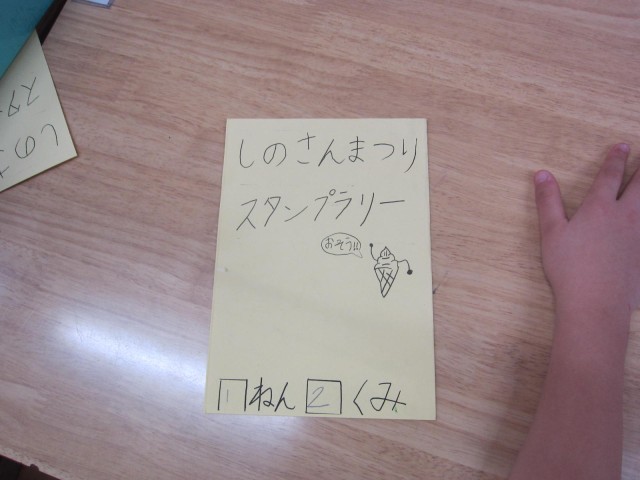 しのさんまつり
スタンプラリー
おそう!!
1ねん2くみ
しのさ
スタ